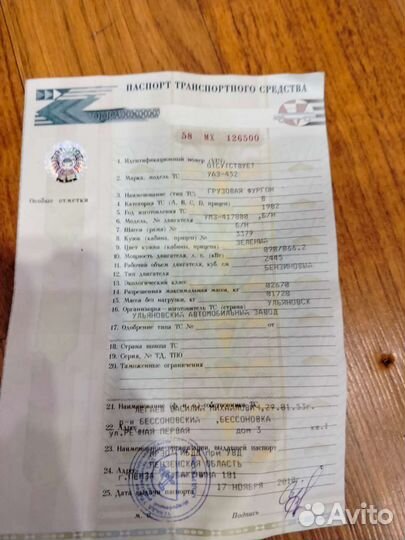 ПАСПОРТ ТРАНСПОРТНОГО СРЕДСТВА
58 МХ 126500
Особые отметки
1. Идентификационный номер (VIN) ОТСУТСТВУЕТ
2. Марка, модель ТС УАЗ-452
3. Наименование (тип ТС) ГРУЗОВАЯ ФУРГОН
4. Категория ТС (А, В, С, D, прицеп) В
5. Год изготовления ТС 1982
6. Модель, № двигателя УМЗ-417800 ,Б/Н
7. Шасси (рама) № Б/Н
8. Кузов (кабина, прицеп) № 3379
9. Цвет кузова (кабины, прицепа) ЗЕЛЕНЫЙ
10. Мощность двигателя, л. с. (кВт) 090/066.2
11. Рабочий объем двигателя, куб. см 2445
12. Тип двигателя БЕНЗИНОВЫЙ
13. Экологический класс
14. Разрешенная максимальная масса, кг 02670
15. Масса без нагрузки, кг 01720
16. Организация-изготовитель ТС (страна) УЛЬЯНОВСК
УЛЬЯНОВСКИЙ АВТОМОБИЛЬНЫЙ ЗАВОД
17. Одобрение типа ТС № от
18. Страна вывоза ТС
19. Серия, № ТД, ТПО
20. Таможенные ограничения
21. Наименование
ВАСИЛИЙ МИХАЙЛОВИЧ,29.01.53г.
22. Адрес р-н БЕССОНОВСКИЙ ,БЕССОНОВКА
ул.РЕЧНАЯ ПЕРВАЯ дом 3 кв.1
23. Наименование организации, выдавшей паспорт
при УВД
24. Адрес ПЕНЗЕНСКАЯ ОБЛАСТЬ
г.ПЕНЗА 181
25. Дата выдачи паспорта 17 НОЯБРЯ
М. П. Подпись
Avito